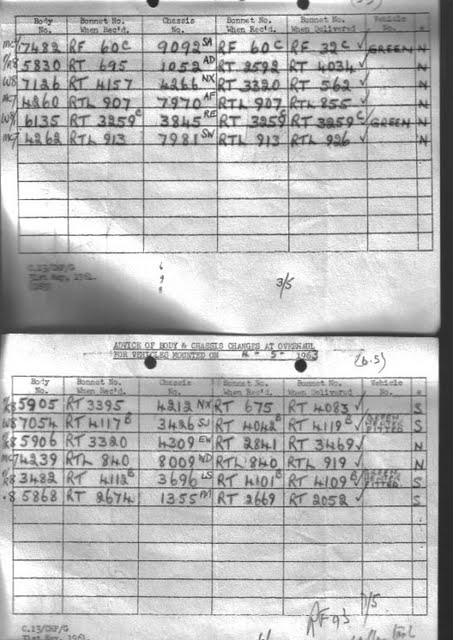 Body No. Bonnet No. When Rec'd. Chassis No. Bonnet No. When Rec'd. Bonnet No. When Delivered Vehicle No. *
7482 RF 60C 9092 SA RF 60C RF 32C ✓ GREEN N
5830 RT 695 1052 AD RT 2592 RT 4034 ✓ N
W8 7126 RT 4157 4266 NX RT 3320 RT 562 ✓ N
MC7 4260 RTL 907 7970 AF RTL 907 RTL 855 ✓ N
W8 6135 RT 3259C 3845 RE RT 3259 RT 3259C ✓ GREEN N
MC7 4262 RTL 913 7981 SW RTL 913 RTL 926 ✓ N
C.13/CHF/G
31st May, 1961.
3/5
ADVICE OF BODY & CHASSIS CHANGES AT OVERHAUL
FOR VEHICLES MOUNTED ON 4 - 5 - 1963 (6.5)
Body No. Bonnet No. When Rec'd. Chassis No. Bonnet No. When Rec'd. Bonnet No. When Delivered Vehicle No. *
5905 RT 3395 4212 NX RT 675 RT 4083 ✓ S
W8 7054 RT 4117B 3426 SJ RT 4042B RT 4119B ✓ GREEN HEATER FITTED S
5906 RT 3320 4309 EW RT 2841 RT 3469 ✓ N
MC7 4239 RTL 840 8009 ND RTL 840 RTL 919 ✓ N
3482 RT 4112B 3696 LS RT 4101B RT 4109B ✓ GREEN HEATER FITTED S
5868 RT 2674 1355 RT 2669 RT 2052 ✓ S
7/5
C.13/CHF/G
31st May, 1961.